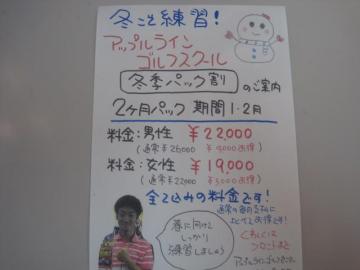 冬こそ練習!
アップルライン
ゴルフスクール
冬季パック割のご案内
2ヶ月パック 期間1・2月
料金:男性 ¥22,000
(通常¥26000 ¥4000お得)
料金:女性 ¥19,000
(通常¥22000 ¥3000お得)
全て込みの料金です!
春に向けて
しっかり
練習しましょう
くわしくは
フロントまで